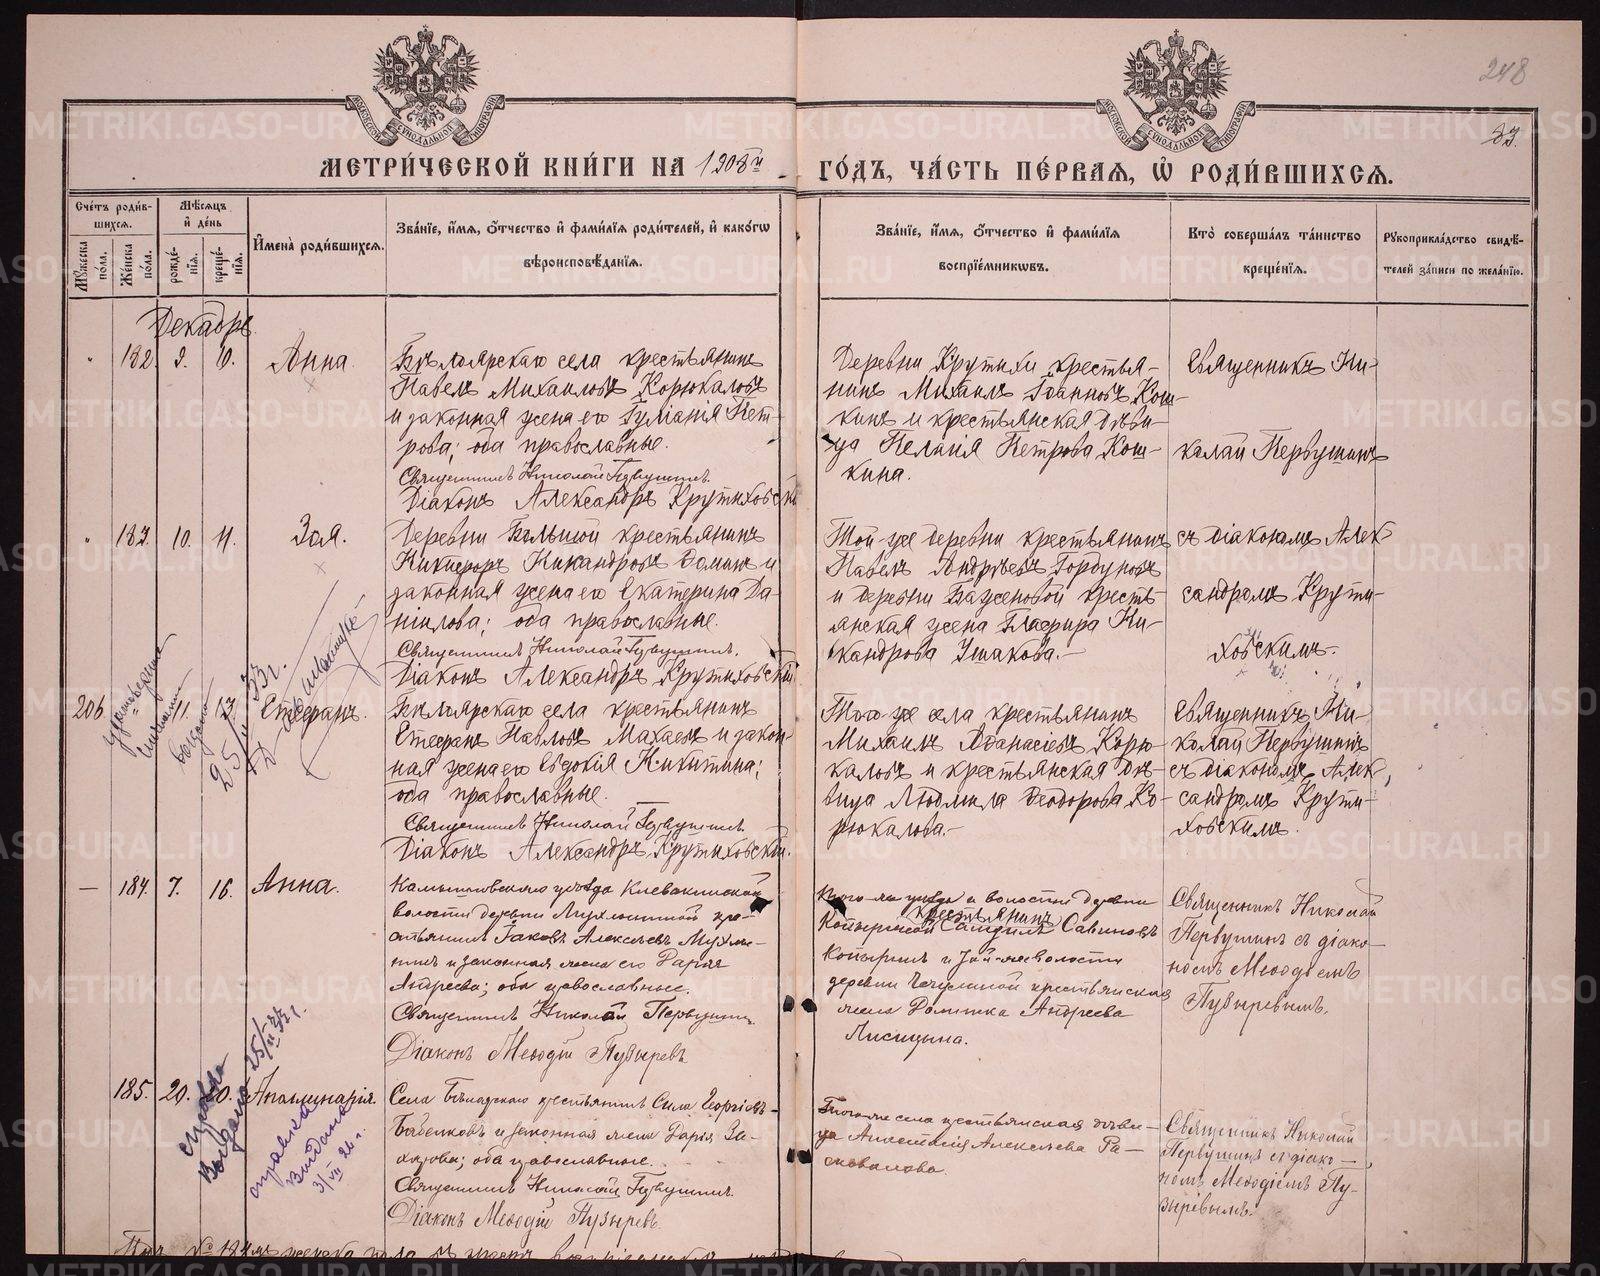 248
83.
МЕТРИ́ЧЕСКОЙ КНИ́ГИ НА 1908й ГО́ДЪ, ЧА́СТЬ ПЕ́РВАЯ, Ѡ РОДИ́ВШИХСЯ.
Сче́тъ роди́вшихся.
Му́жеска по́ла.
Же́нска по́ла.
Мѣ́сяцъ и҆ де́нь
рожде́нїя.
креще́нїя.
И҆мена̀ роди́вшихся.
Зва́нїе, и҆́мя, ѻ҆́тчество и҆ фами́лїя роди́телей, и҆ како́гѡ
вѣроисповѣ́данїя.
Зва́нїе, и҆́мя, ѻ҆́тчество и҆ фами́лїя
воспрїе́мникѡвъ.
Кто̀ соверша́лъ та́инство
креще́нїя.
Рꙋкоприкла́дство свидѣ́-
телей за́писи по жела́нїю.
Декабрь.
182. 9. 10. Анна.
Бѣлоярскаго села крестьянинъ
Павелъ Михаиловъ Корюкаловъ
и законная жена его Іуліанія Пет-
рова; оба православные.
Священникъ Николай Первушинъ.
Діаконъ Александръ Крутиховскій
Деревни Крутихи крестья-
нинъ Михаилъ Іоанновъ Кош-
кинъ и крестьянская дѣви-
ца Пелагія Петрова Кош-
кина.
Священникъ Ни-
колай Первушинъ
183. 10. 11. Зоя.
Деревни Большой крестьянинъ
Никифоръ Никандровъ и
законная жена его Екатерина Да-
ніилова; оба православные.
Священникъ Николай Первушинъ.
Діаконъ Александръ Крутиховскій
Той-же деревни крестьянинъ
Павелъ Андреевъ Горбуновъ
и деревни Баженовой кресть-
янская жена Глафира Ни-
кандрова Ушакова.
съ діакономъ Алек-
сандромъ Крути-
ховскимъ.
206 11. Стефанъ.
Бѣлоярскаго села крестьянинъ
Стефанъ Павловъ Махаевъ и закон-
ная жена его Евдокія Никитина;
оба православные.
Священникъ Николай Первушинъ
Діаконъ Александръ Крутиховскій.
Того-же села крестьянинъ
Михаилъ Аѳанасіевъ Корю-
каловъ и крестьянская дѣ-
вица Людмила Ѳеодорова Ко-
рюкалова.
Священникъ Ни-
колай Первушинъ
съ діакономъ Алек-
сандромъ Крути-
ховскимъ.
— 184. 7. 16. Анна.
Камышловскаго уѣзда Клевакинской
волости деревни Мухлыниной кре-
стьянинъ Іаковъ Алексѣевъ Мухлы-
нинъ и законная жена его Дарія
Андреева; оба православные.
Священникъ Николай Первушинъ.
Діаконъ Меѳодій Пузыревъ
Того-же уѣзда и волости деревни
крестьянинъ
Савиновъ
Копыринъ и той-же волости
деревни крестьянская
жена Домника Андреева
Лисицына.
Священникъ Николай
Первушинъ съ діако-
номъ Меѳодіемъ
Пузыревымъ.
185. 20. 20. Аполлинарія.
Села Бѣлоярскаго крестьянинъ Сила Георгіевъ
Бабенковъ и законная жена Дарія За-
харова; оба православные.
Священникъ Николай Первушинъ.
Діаконъ Меѳодій Пузыревъ.
Того-же села крестьянская дѣви-
ца Анастасія Алексѣева Ра-
сковалова.
Священникъ Николай
Первушинъ съ діако-
номъ Меѳодіемъ Пу-
зыревымъ.
справка
Выдана 25/II 33 г.
справка
Выдана
3/VII 26 г.
METRIKI.GASO-URAL.RU